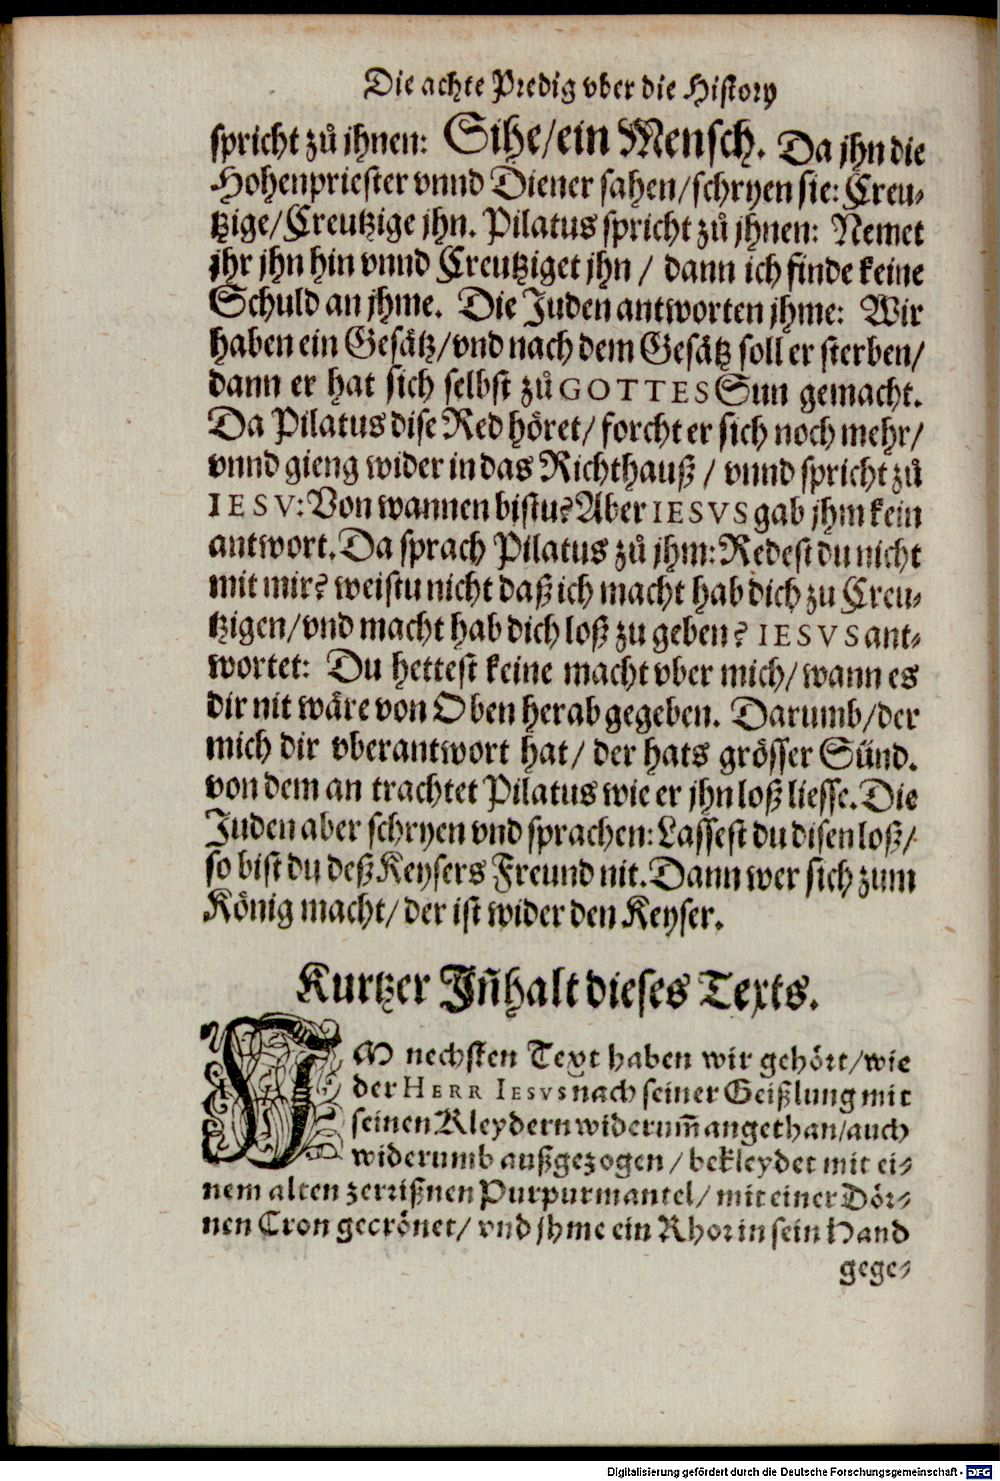 Die achte Predig vber die History
spricht zů jhnen: Sihe/ein Mensch. Da jhn die
Hohenpriester vnnd Diener sahen/schryen sie: Creu-
tzige/Creutzige jhn. Pilatus spricht zů jhnen: Nemet
jhr jhn hin vnnd Creutziget jhn / dann ich finde keine
Schuld an jhme. Die Juden antworten jhme: Wir
haben ein Gesätz/vnd nach dem Gesätz soll er sterben/
dann er hat sich selbst zů GOTTES Sun gemacht.
Da Pilatus dise Red höret/ forcht er sich noch mehr/
vnnd gieng wider in das Richthauß / vnnd spricht zů
IESV: Von wannen bistu? Aber IESVS gab jhm kein
antwort. Da sprach Pilatus zů jhm: Redest du nicht
mit mir? weistu nicht daß ich macht hab dich zu Creu-
tzigen/vnd macht hab dich loß zu geben? IESVS ant-
wortet: Du hettest keine macht vber mich/ wann es
dir nit wäre von Oben herab gegeben. Darumb/der
mich dir vberantwort hat/ der hats grösser Sünd.
von dem an trachtet Pilatus wie er jhn loß liesse. Die
Juden aber schryen vnd sprachen: Lassest du disen loß/
so bist du deß Keysers Freund nit. Dann wer sich zum
König macht/ der ist wider den Keyser.
Kurtzer Jñhalt dieses Texts.
JM nechsten Text haben wir gehört/wie
der HERR IESVS nach seiner Geißlung mit
seinen Kleydern widerum̃ angethan/auch
widerumb außgezogen / bekleydet mit ei-
nem alten zerrißnen Purpurmantel/ mit einer Dör-
nen Cron gecrönet/ vnd jhme ein Rhor in sein Hand
gege-
Digitalisierung gefördert durch die Deutsche Forschungsgemeinschaft - DFG